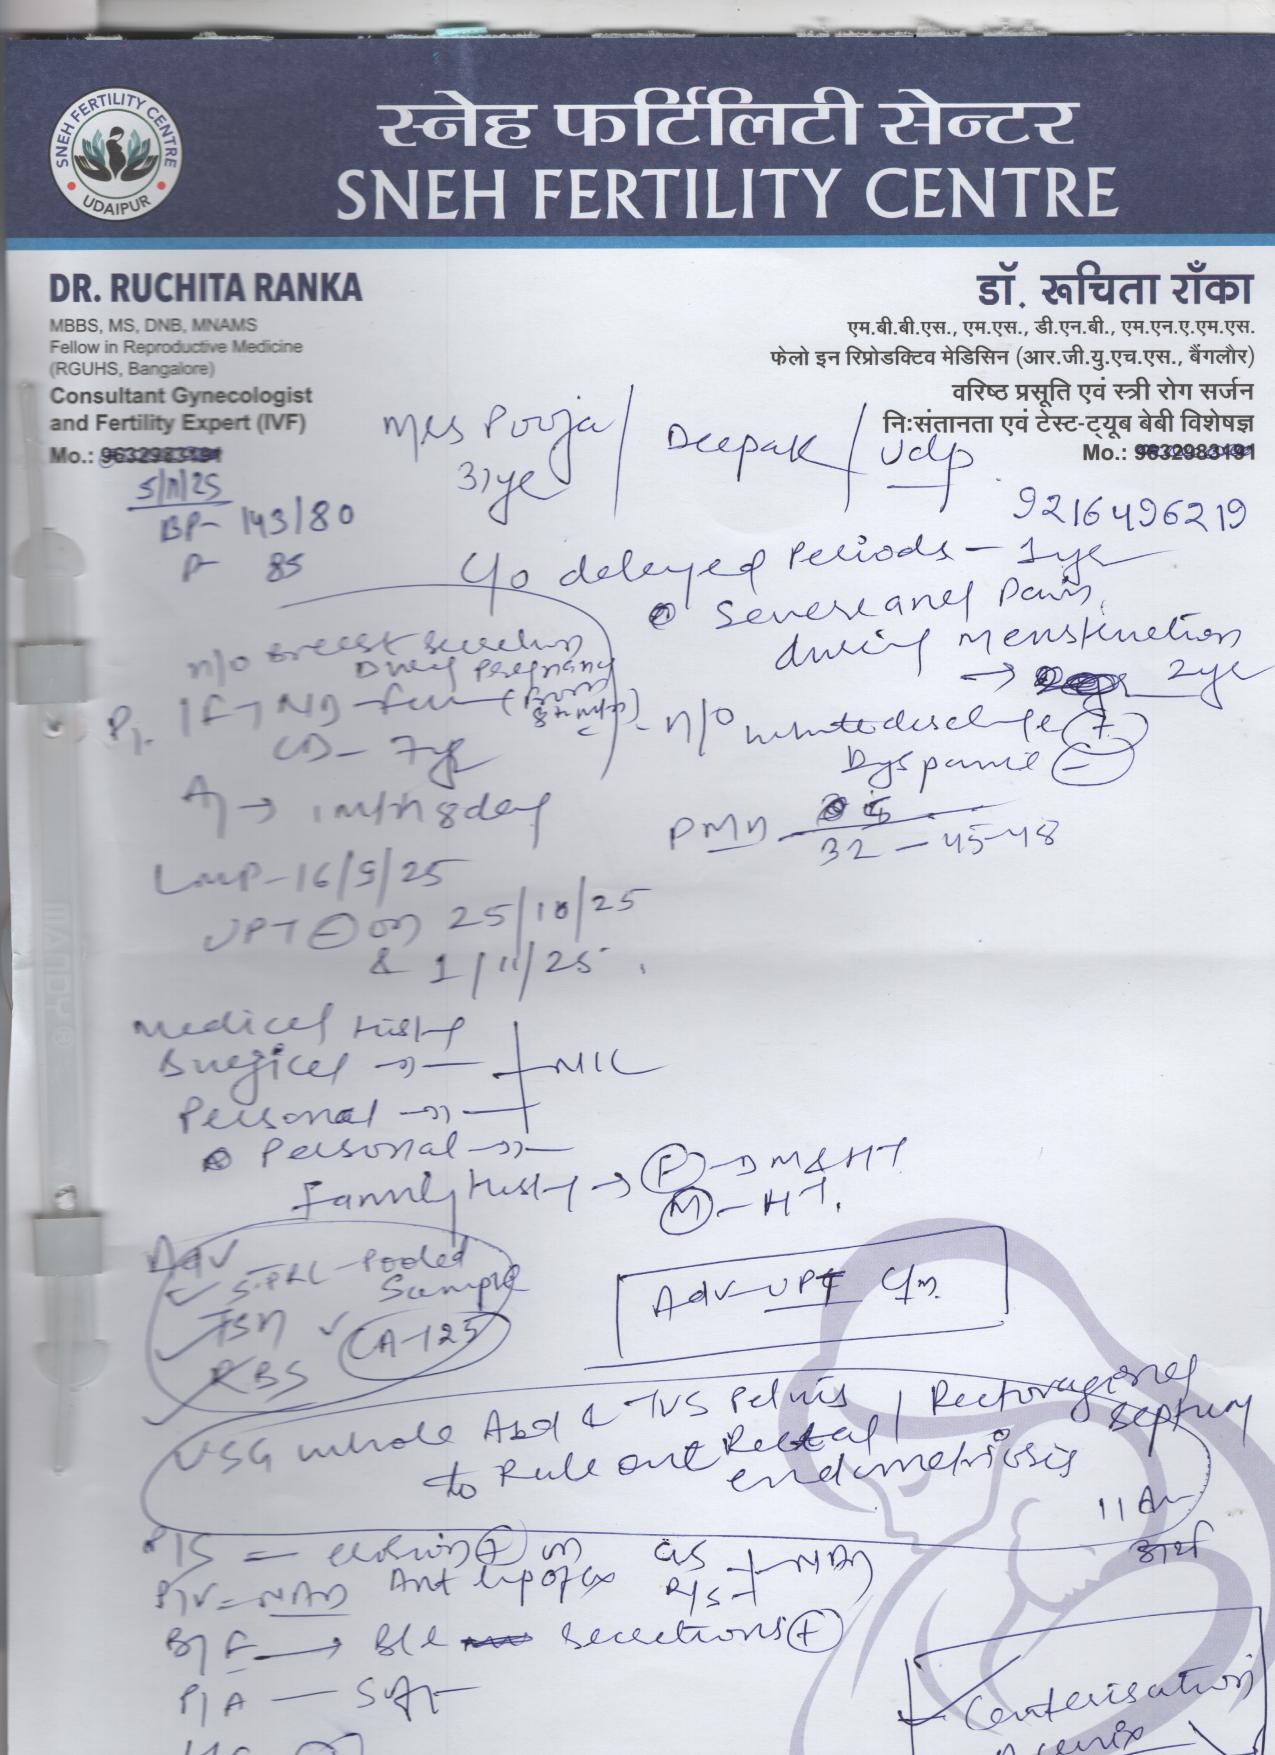 स्नेह फर्टिलिटी सेन्टर
SNEH FERTILITY CENTRE
SNEH FERTILITY CENTRE
UDAIPUR
DR. RUCHITA RANKA
MBBS, MS, DNB, MNAMS
Fellow in Reproductive Medicine
(RGUHS, Bangalore)
Consultant Gynecologist
and Fertility Expert (IVF)
Mo.: 9632983191
डॉ. रूचिता राँका
एम.बी.बी.एस., एम.एस., डी.एन.बी., एम.एन.ए.एम.एस.
फेलो इन रिप्रोडक्टिव मेडिसिन (आर.जी.यु.एच.एस., बैंगलौर)
वरिष्ठ प्रसूति एवं स्त्री रोग सर्जन
निःसंतानता एवं टेस्ट-ट्यूब बेबी विशेषज्ञ
Mo.: 9632983191
Mrs Pooja / Deepak / Udp
31yr
9216496219
5/11/25
BP- 143/80
P- 85
c/o delayed Periods - 1yr
Severe Pain
during Menstruation
→ 2yr
H/O Breast Secretion
During Pregnancy
P1. 1F7 ND
LD- 7yr
A1 → 1
H/O white discharge +
Dyspareu -
PMH
32 - 45-48
LMP-16/9/25
UPT - on 25/10/25
& 1/11/25.
Medical History
Surgical -"-
NIL
Personal -"-
Personal -"-
Family History → F - DM & HT
M - HT.
Adv
S.PRL - Pooled
Sample
TSH
CA-125
RBS
Adv UPT C/m.
USG whole Abd & TVS Pelvis
to Rule out Rectal / Rectovaginal
Septum
endometriosis
P/S = erosion + on
Ant lip of cx
P/V = NAD
CVS
R/S
NAD
B/E → B/L secretions +
P/A - Soft
11 Am
Cauterisation